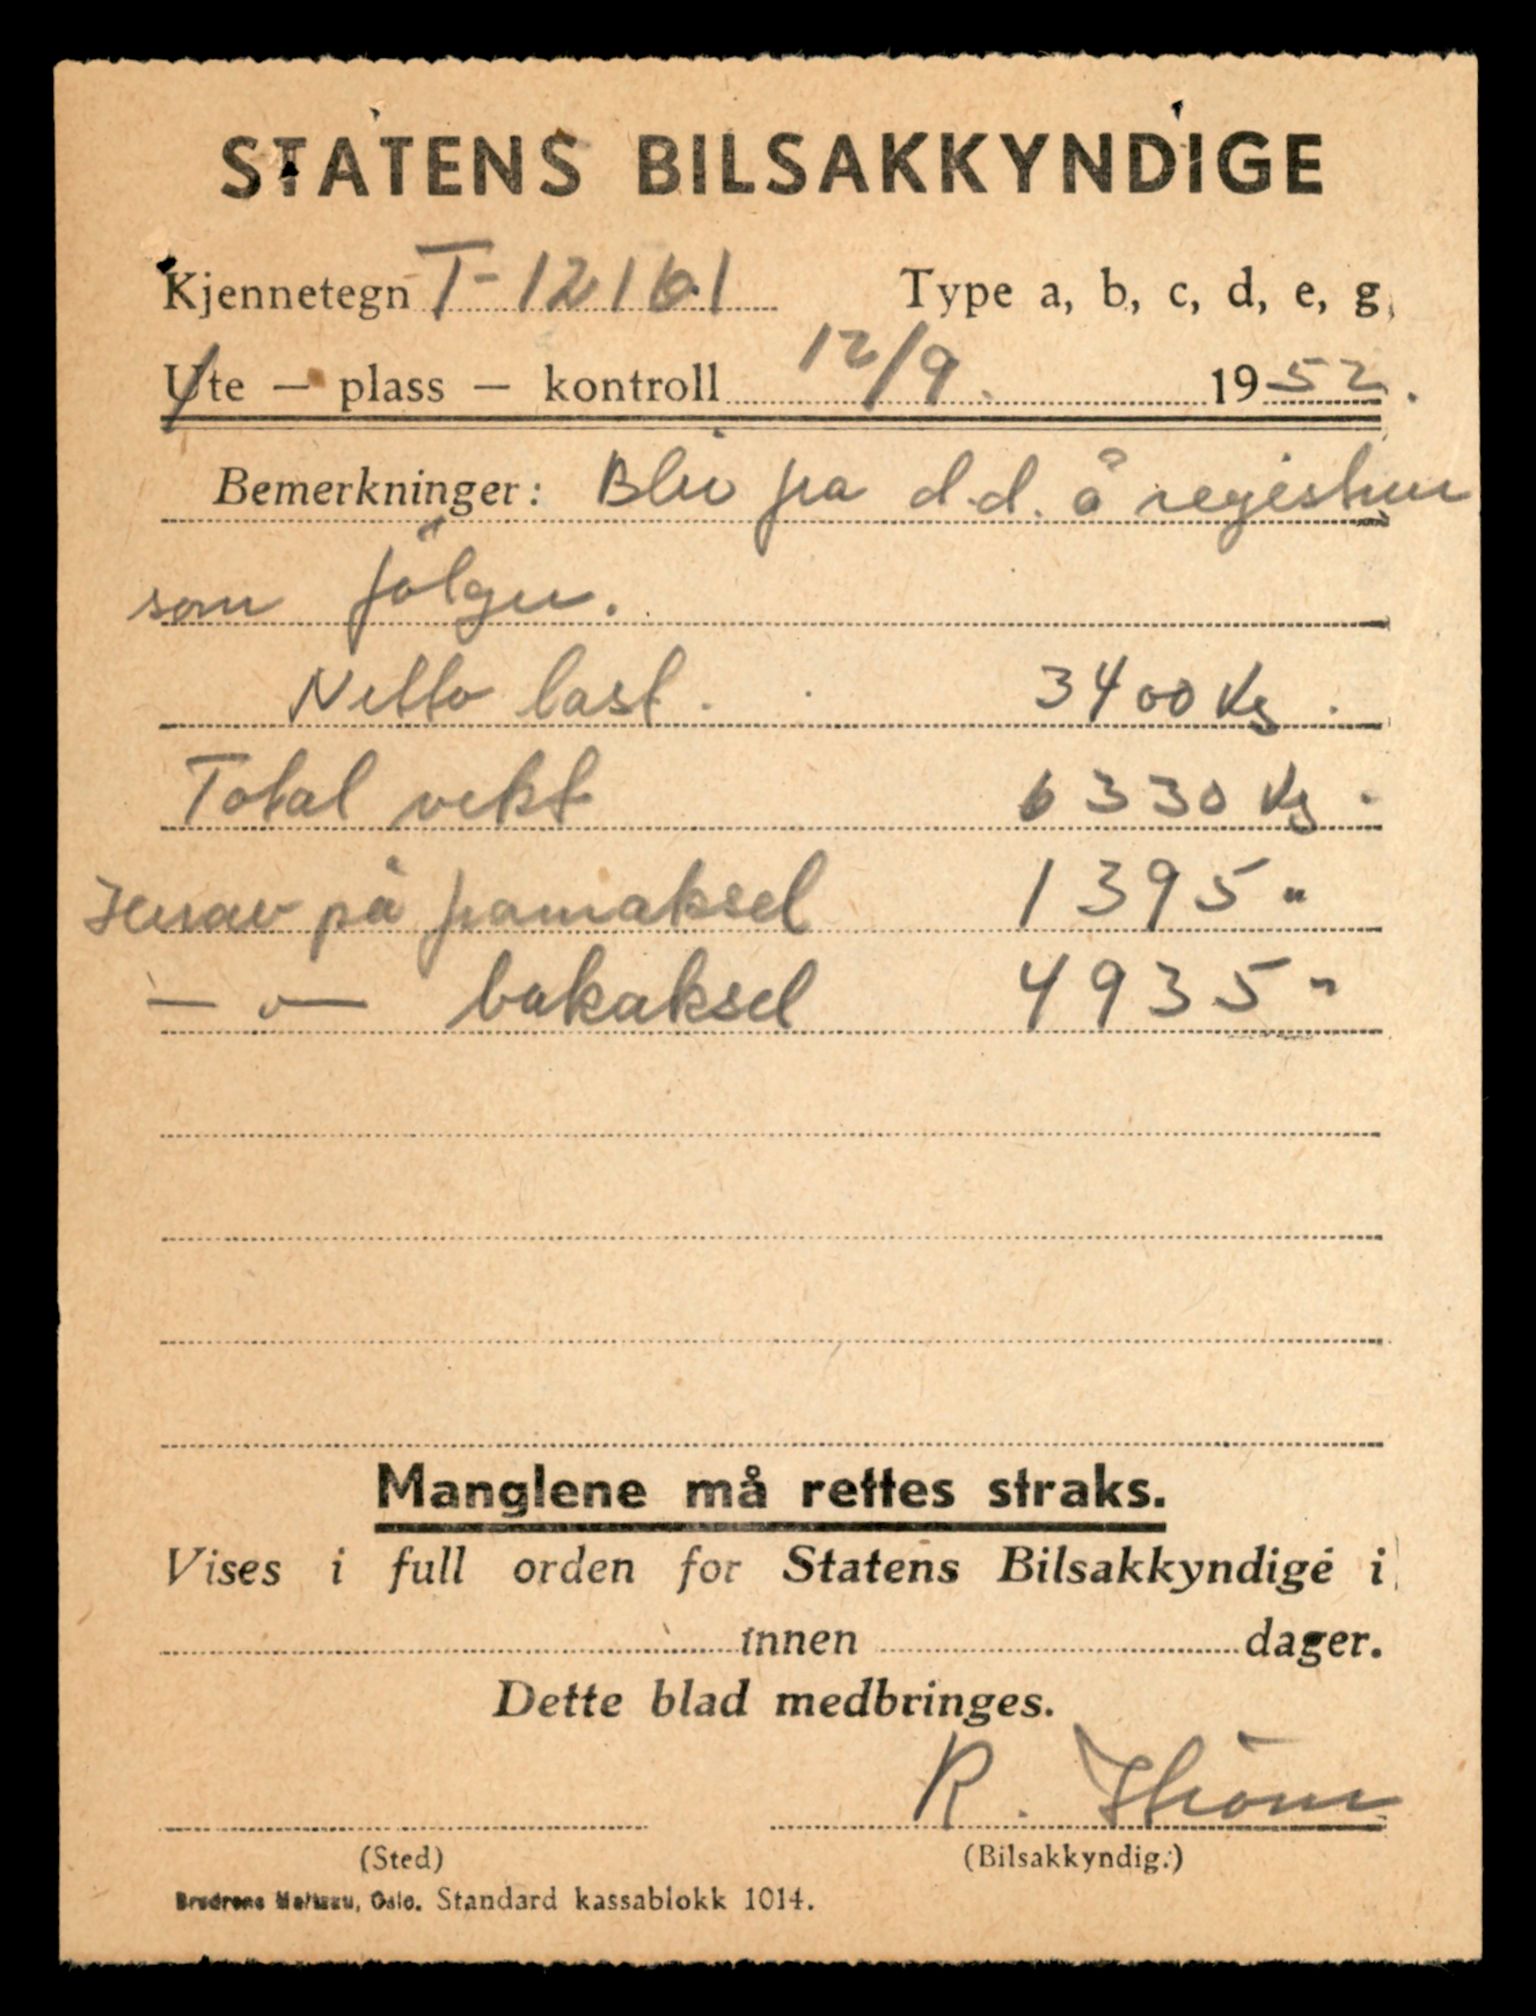 STATENS BILSAKKYNDIGE
Kjennetegn T-12161 Type a, b, c, d, e, g,
Ute — plass — kontroll 12/9. 1952.
Bemerkninger: Blir fra d.d. å registrere
som følger.
Netto last. 3400 kg.
Total vekt 6330 kg.
Herav på framaksel 1395 "
— " — bakaksel 4935 "
Manglene må rettes straks.
Vises i full orden for Statens Bilsakkyndige i
innen dager.
Dette blad medbringes.
R.
(Sted) (Bilsakkyndig.)
Oslo. Standard kassablokk 1014.